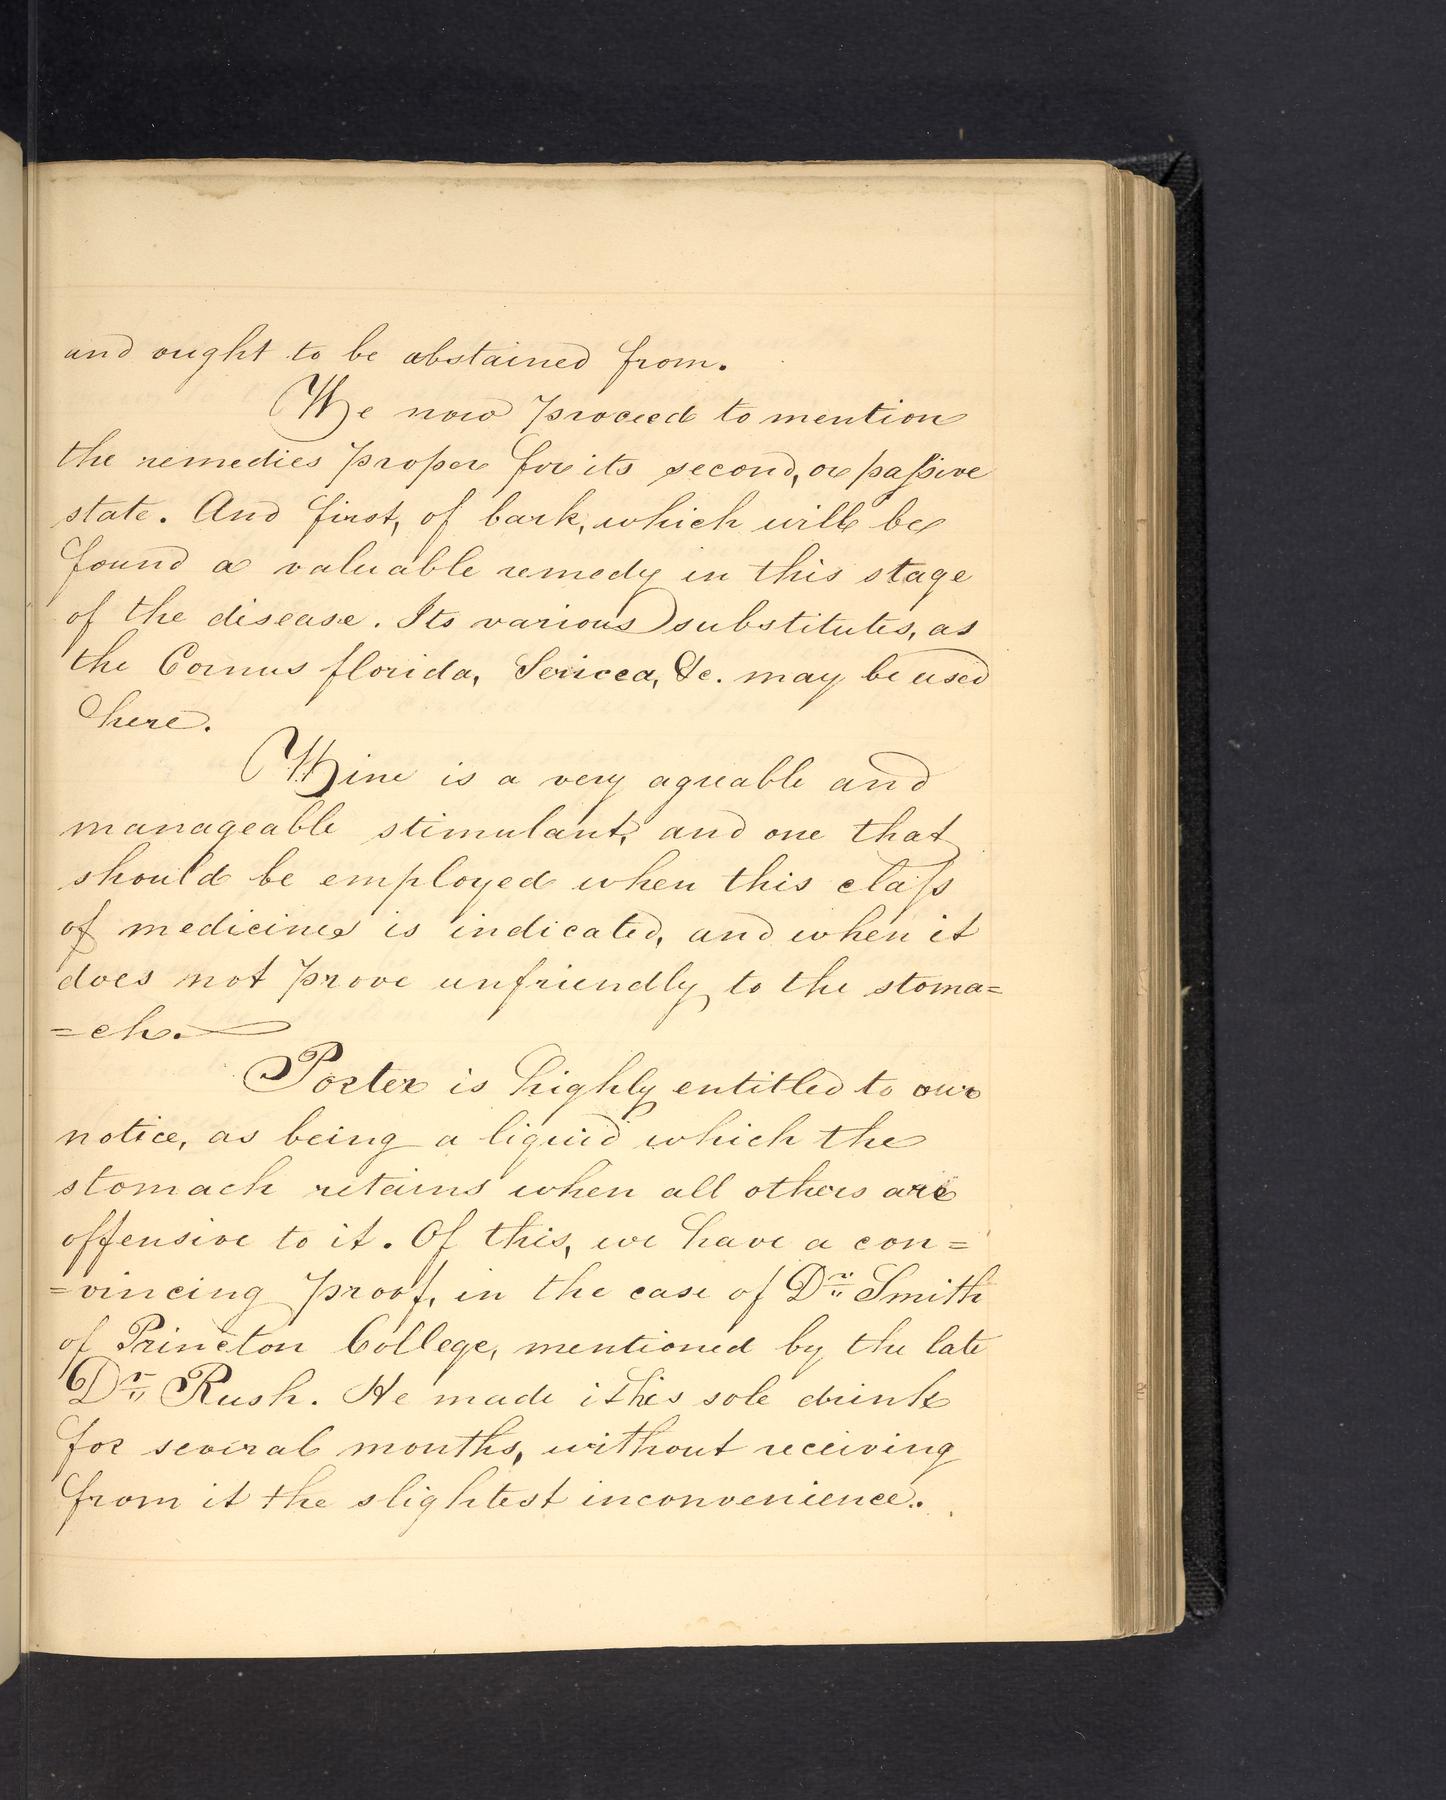 and ought to be abstained from.
We now proceed to mention
the remedies proper for its second, or passive
state. And first, of bark, which will be
found a valuable remedy in this stage
of the disease. Its various substitutes, as
the Cornus florida, Sericea, &c. may be used
here.
Wine is a very agreable and
manageable stimulant, and one that
should be employed when this class
of medicines is indicated, and when it
does not prove unfriendly to the stoma=
=ch.
Porter is highly entitled to our
notice, as being a liquid which the
stomach retains when all others are
offensive to it. Of this, we have a con=
=vincing proof, in the case of Dr. Smith
of Princeton College, mentioned by the late
Dr. Rush. He made it his sole drink
for several months, without receiving
from it the slightest inconvenience.